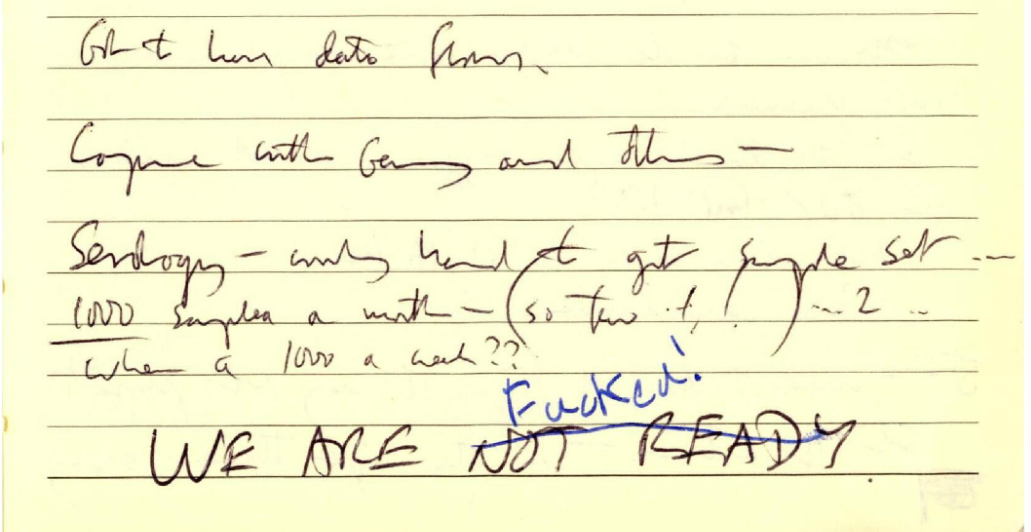 data flows.
with Germany and others —
Serology — working hard to get sample set ...
1000 samples a month — (so two ! ) ... 2 ..
when a 1000 a week??
Fucked!
WE ARE NOT READY.